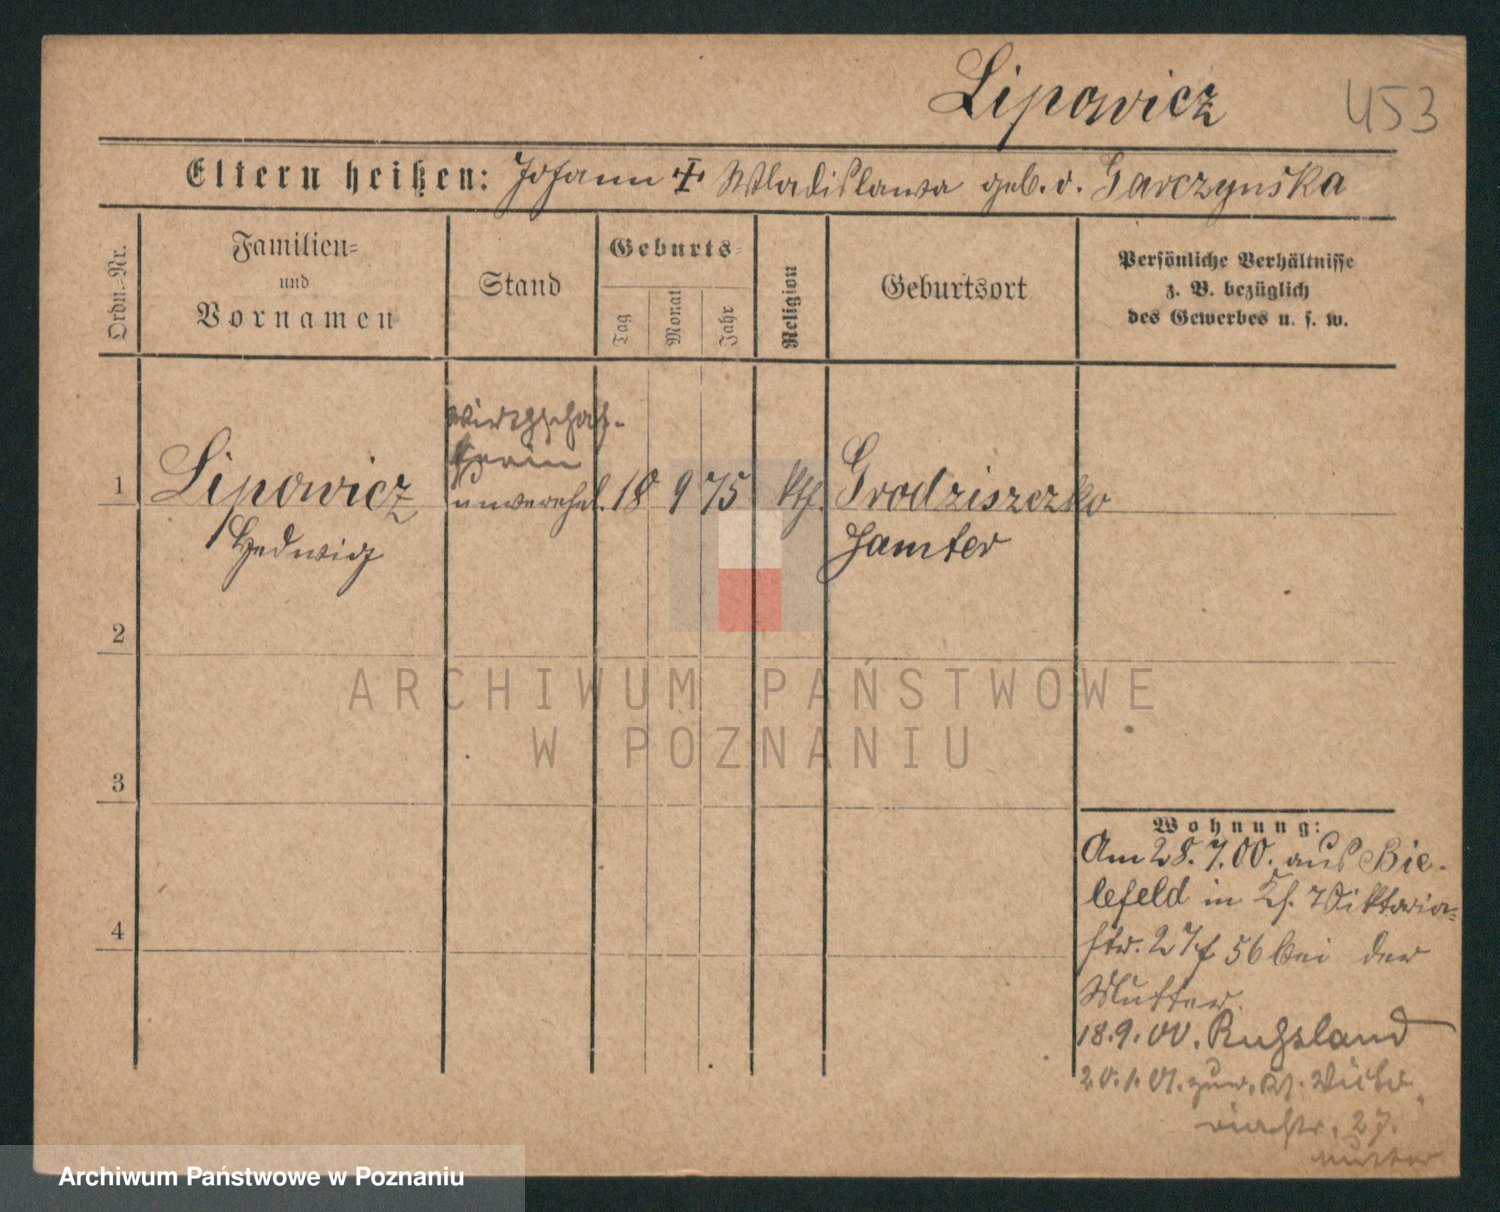 Lipowicz
453
Eltern heißen: Johann + Wladislawa geb. v. Garczynska
Ordn.-Nr.
Familien-
und
Vornamen
Stand
Geburts-
Tag
Monat
Jahr
Religion
Geburtsort
Persönliche Verhältnisse
z. B. bezüglich
des Gewerbes u. s. w.
wirthschaf-
terin
1 Lipowicz unverehel. 18 9 75 kth. Grodziszczko
Hedwig Samter
2
3
4
Wohnung:
Am 28. 7. 00. aus Bie-
lefeld in Viktoria-
str. 27 56 bei der
Mutter.
18. 9. 00. Russland
20. 1. 01. zur. Victo-
riastr. 27.
Mutter
ARCHIWUM PAŃSTWOWE
W POZNANIU
Archiwum Państwowe w Poznaniu